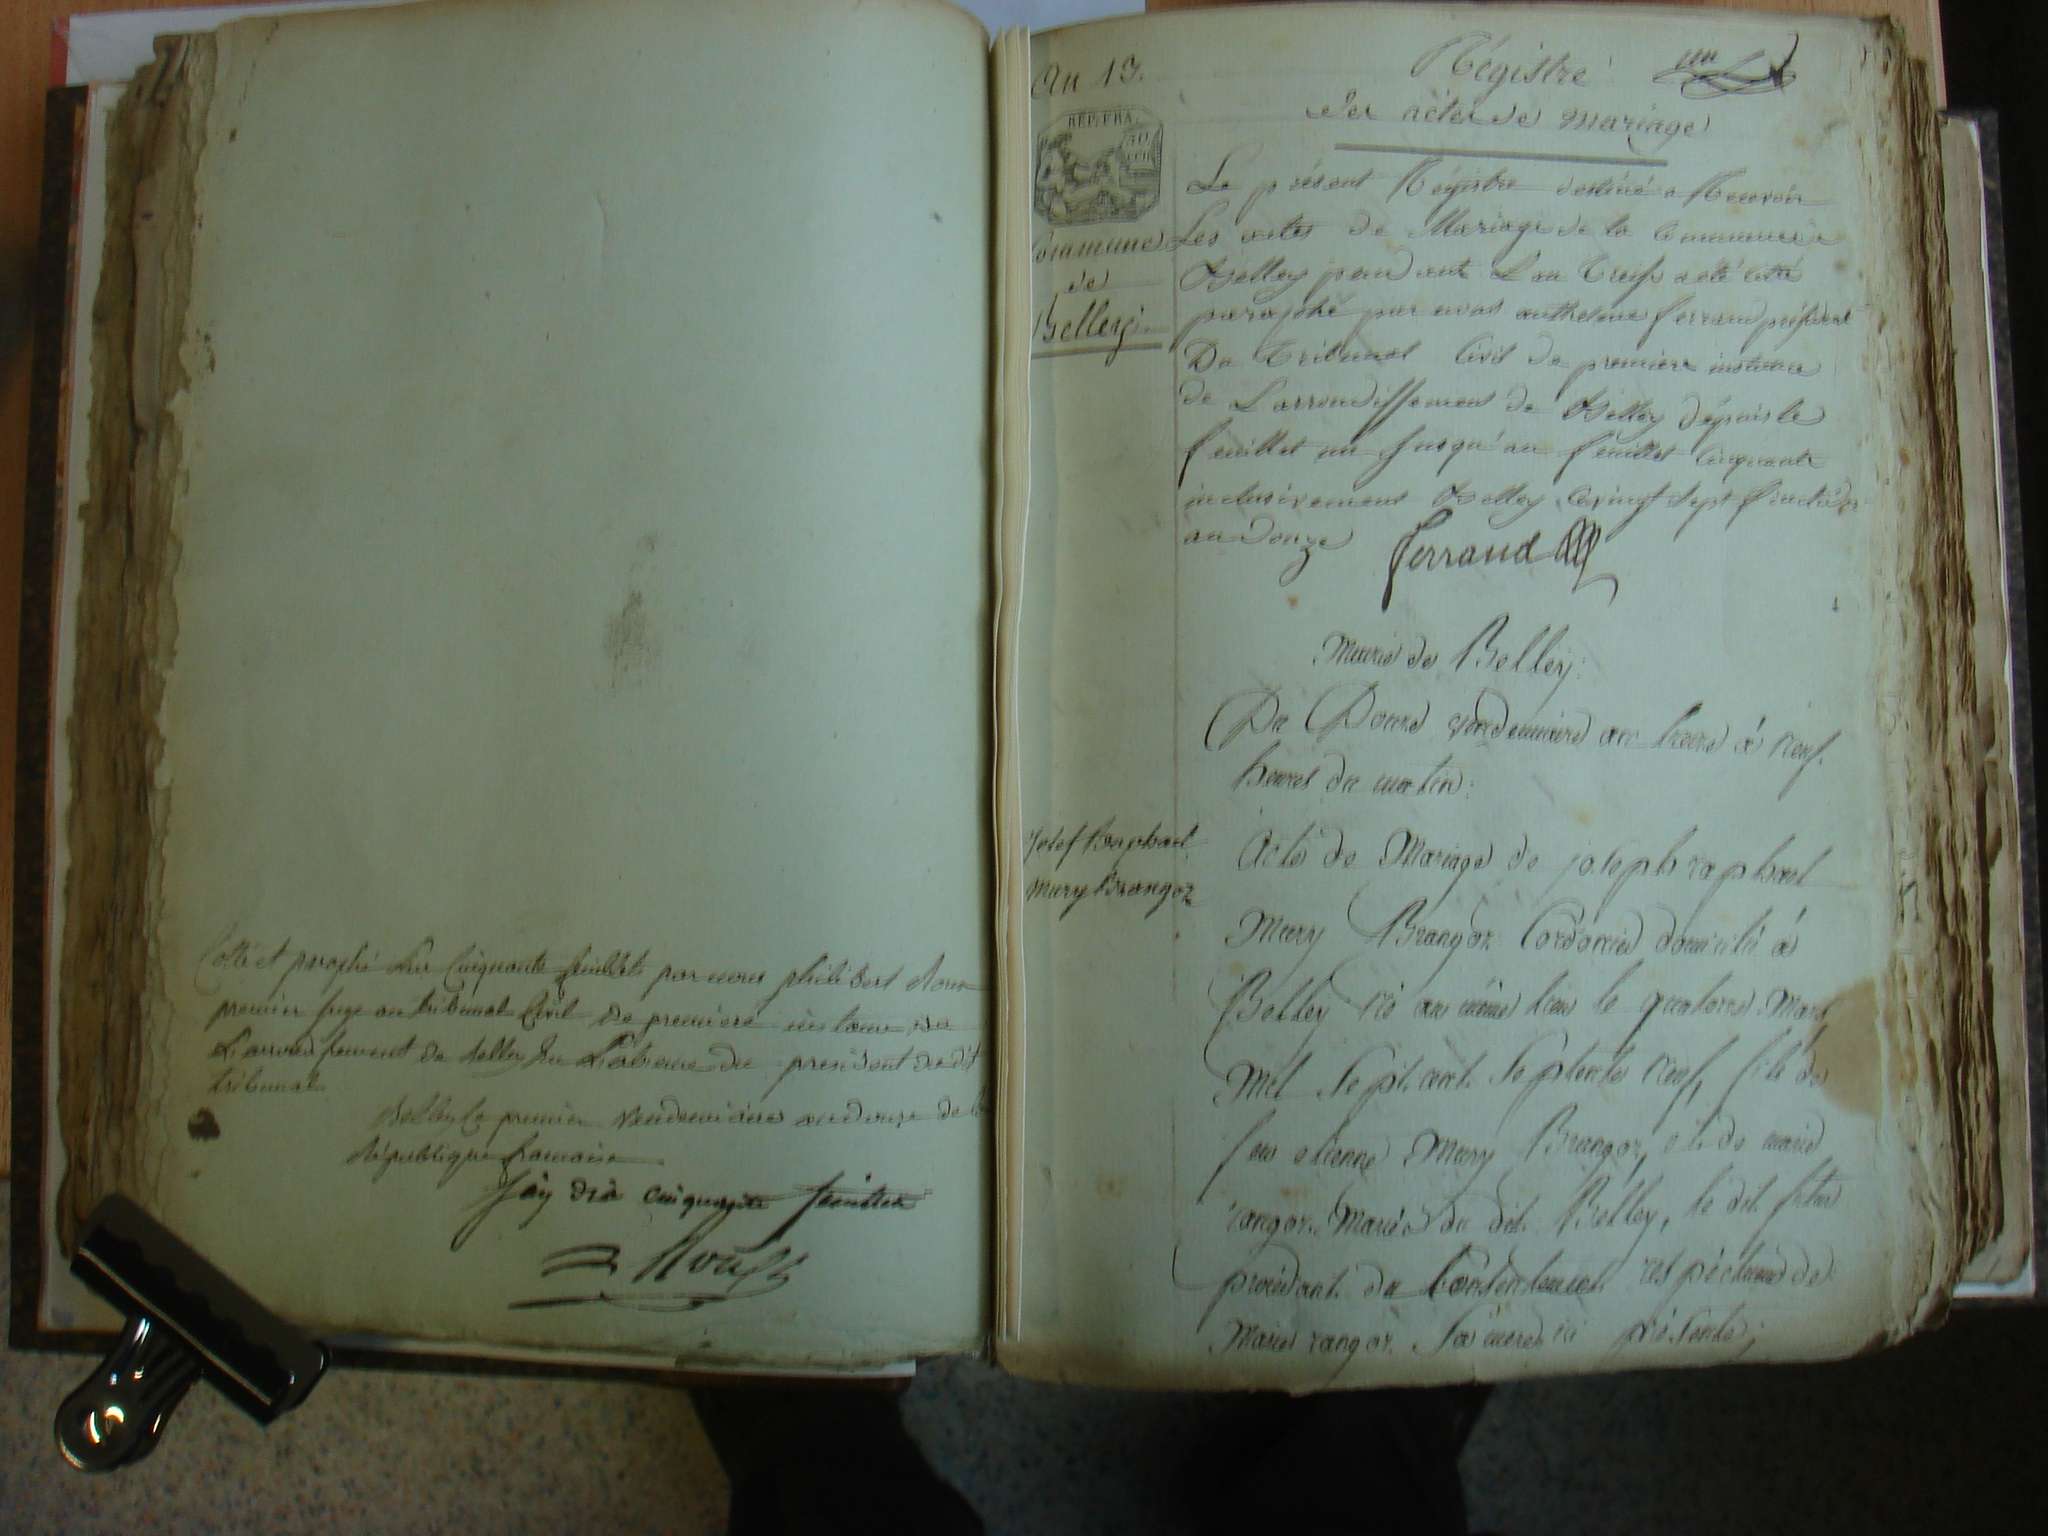 Cotté et paraphé sur Cinquante feuillets par nous philibert Roux
premier juge au tribunal Civil de premiere instance de
L'arrondissement de belley en L'absence du président du dit
tribunal
belley le premier vendemiaire an douze de la
République francaise
j'ay dit cinquante feuillets
Roux
An 13.
Régistre un
Des actes de Mariage
REP. FRA.
Commune
de
Belley
Le présent Régistre destiné a Recevoir
Les actes de Mariage de la Commune de
Belley pendant L'an treize a été cotté
paraphé par nous anthelme ferrand président
Du tribunal Civil de premiere instance
de L'arrondissement de Belley depuis le
feuillet un jusqu'au feuillet cinquante
inclusivement Belley le vingt sept fructidor
an douze ferrand
Mairie de Belley:
Du Douze vendemiaire an treize à neuf
heures du matin:
Josef Raphael
Mury Brangoz
Acte de Mariage de joseph raphael
Mury Brangoz Cordonnier domicilié à
Belley né au même lieu le quatorze Mars
Mil sept cent septente neuf, fils de
feu etienne Mury Brangoz, et de marie
rangoz. Mariés du dit Belley, le dit futur
procédant du Consentement respectueux de
Marie rangoz sa mere ici présente;